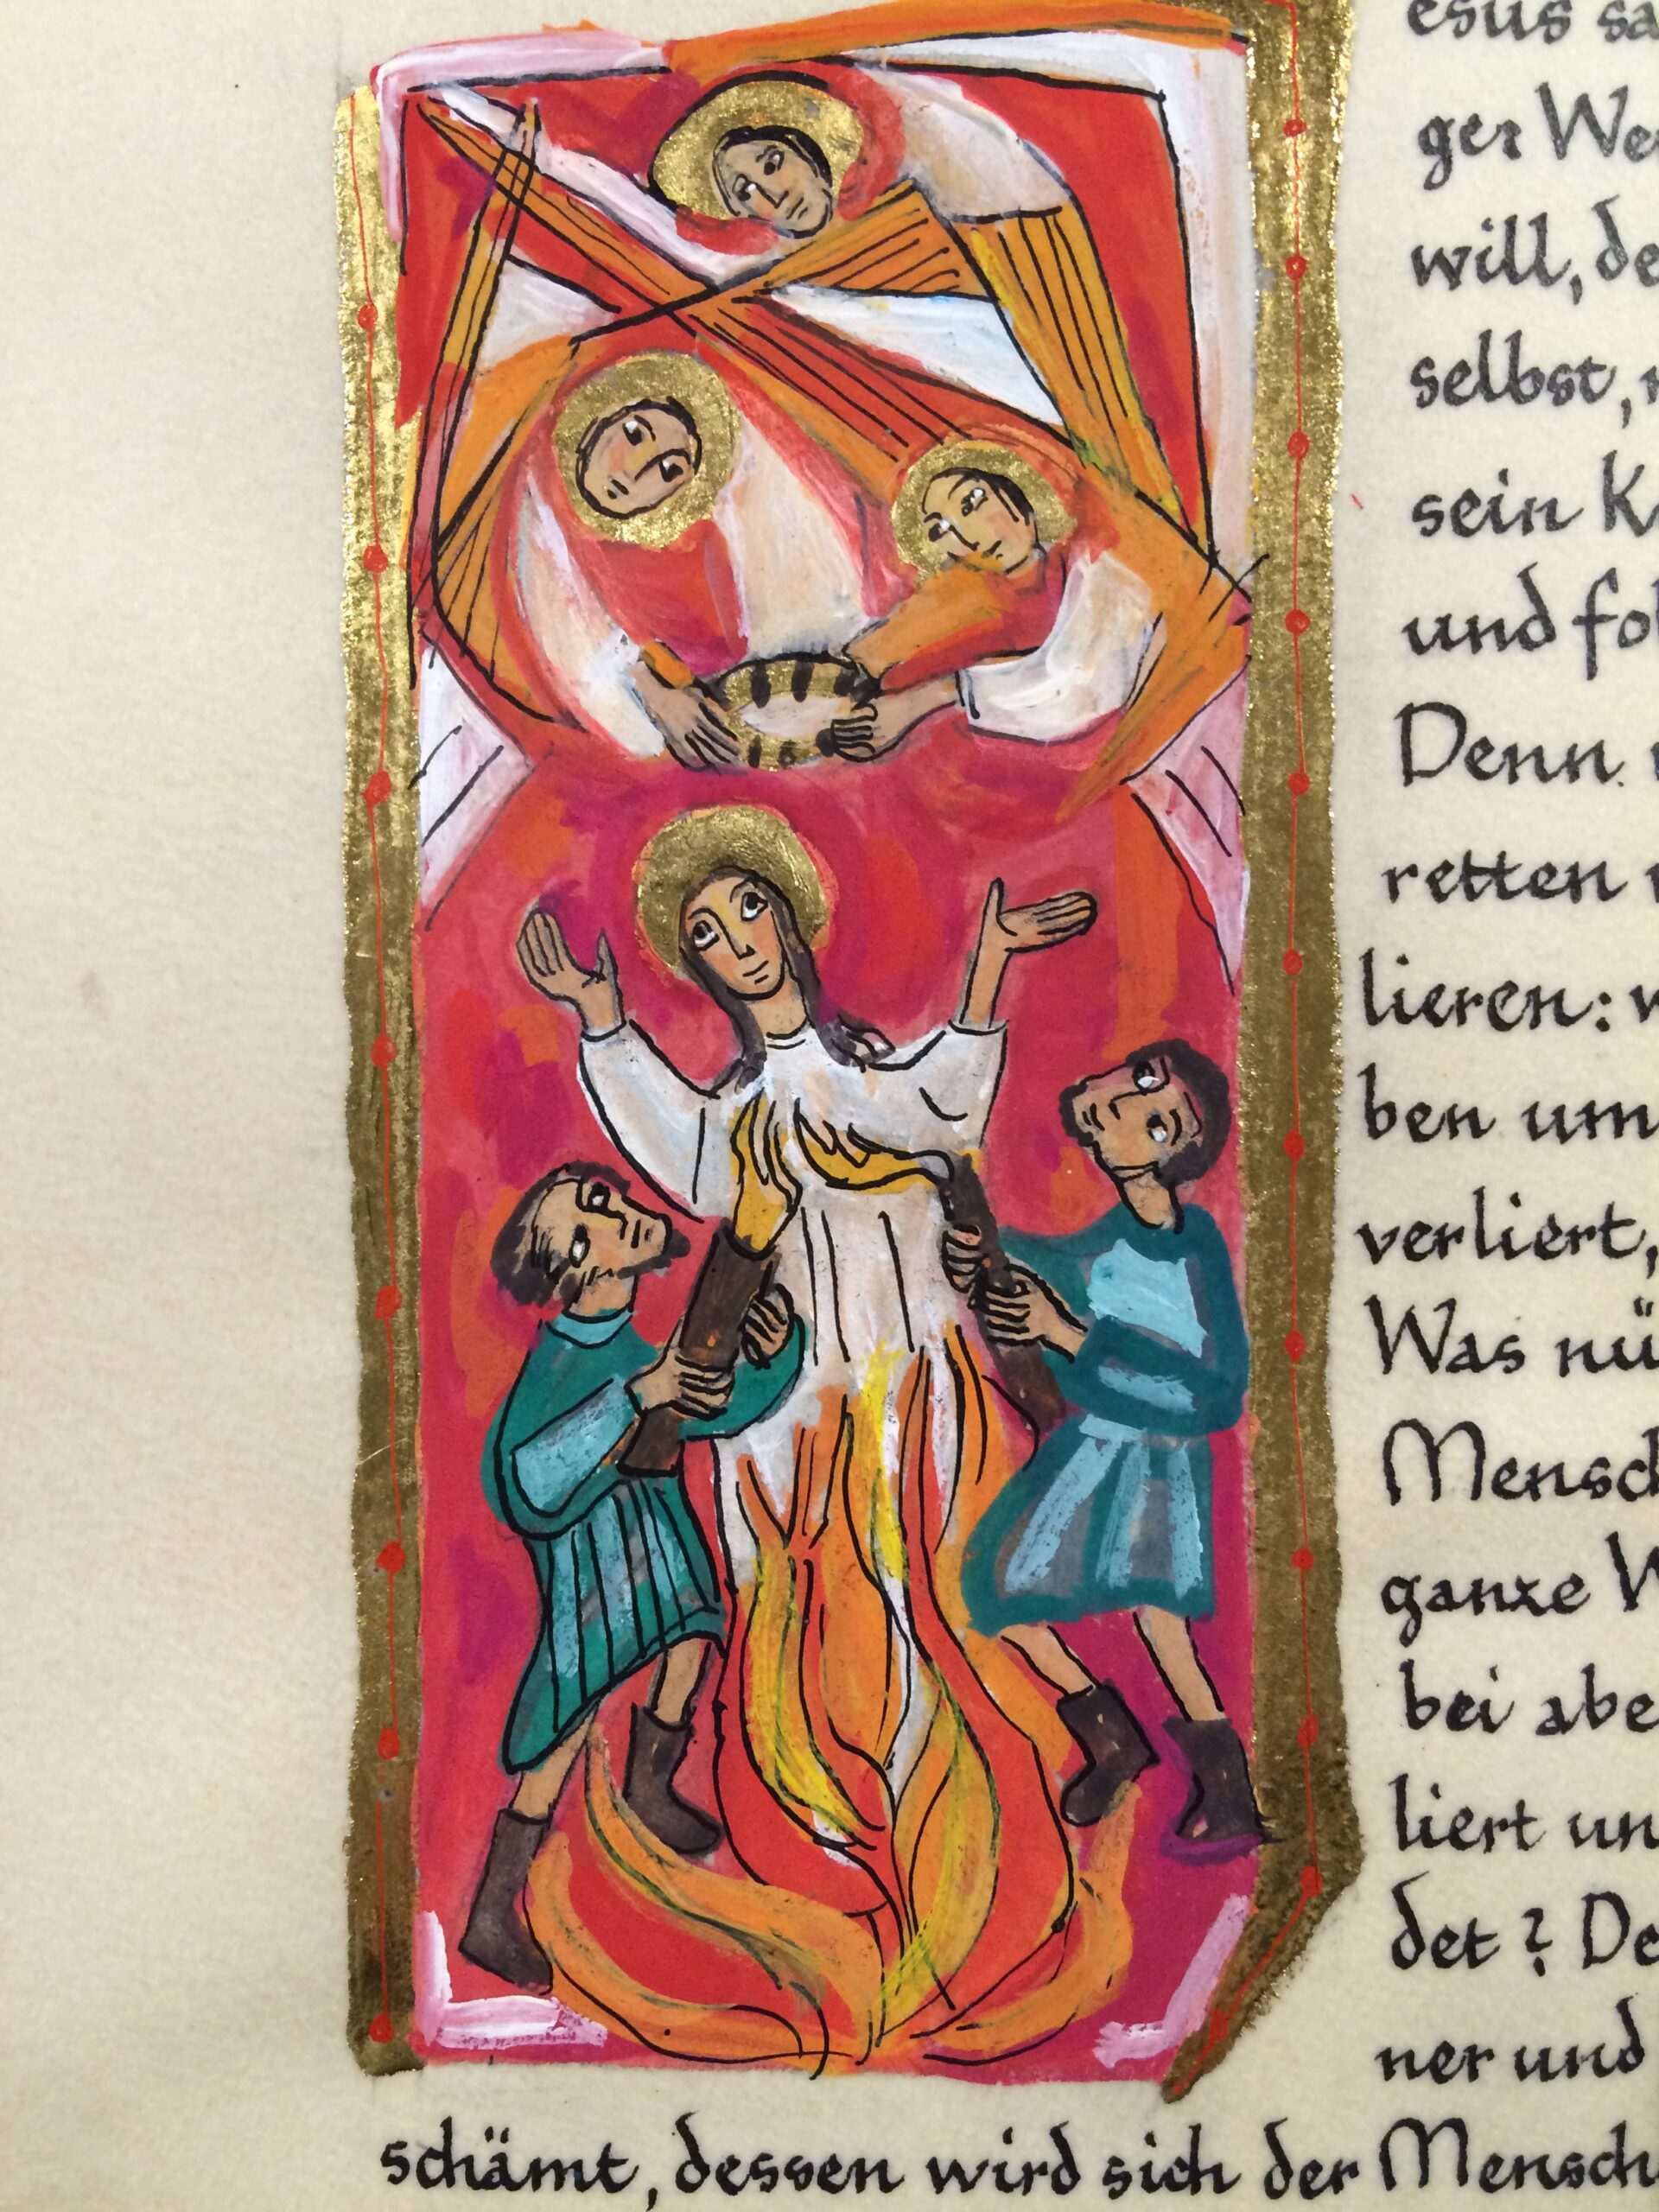 esus sa
ger We
will, de
selbst,
sein K
und fol
Denn
retten
lieren:
ben um
verliert,
Was nü
Mensch
ganze W
bei abe
liert un
det? De
ner und
schämt, dessen wird sich der Mensch